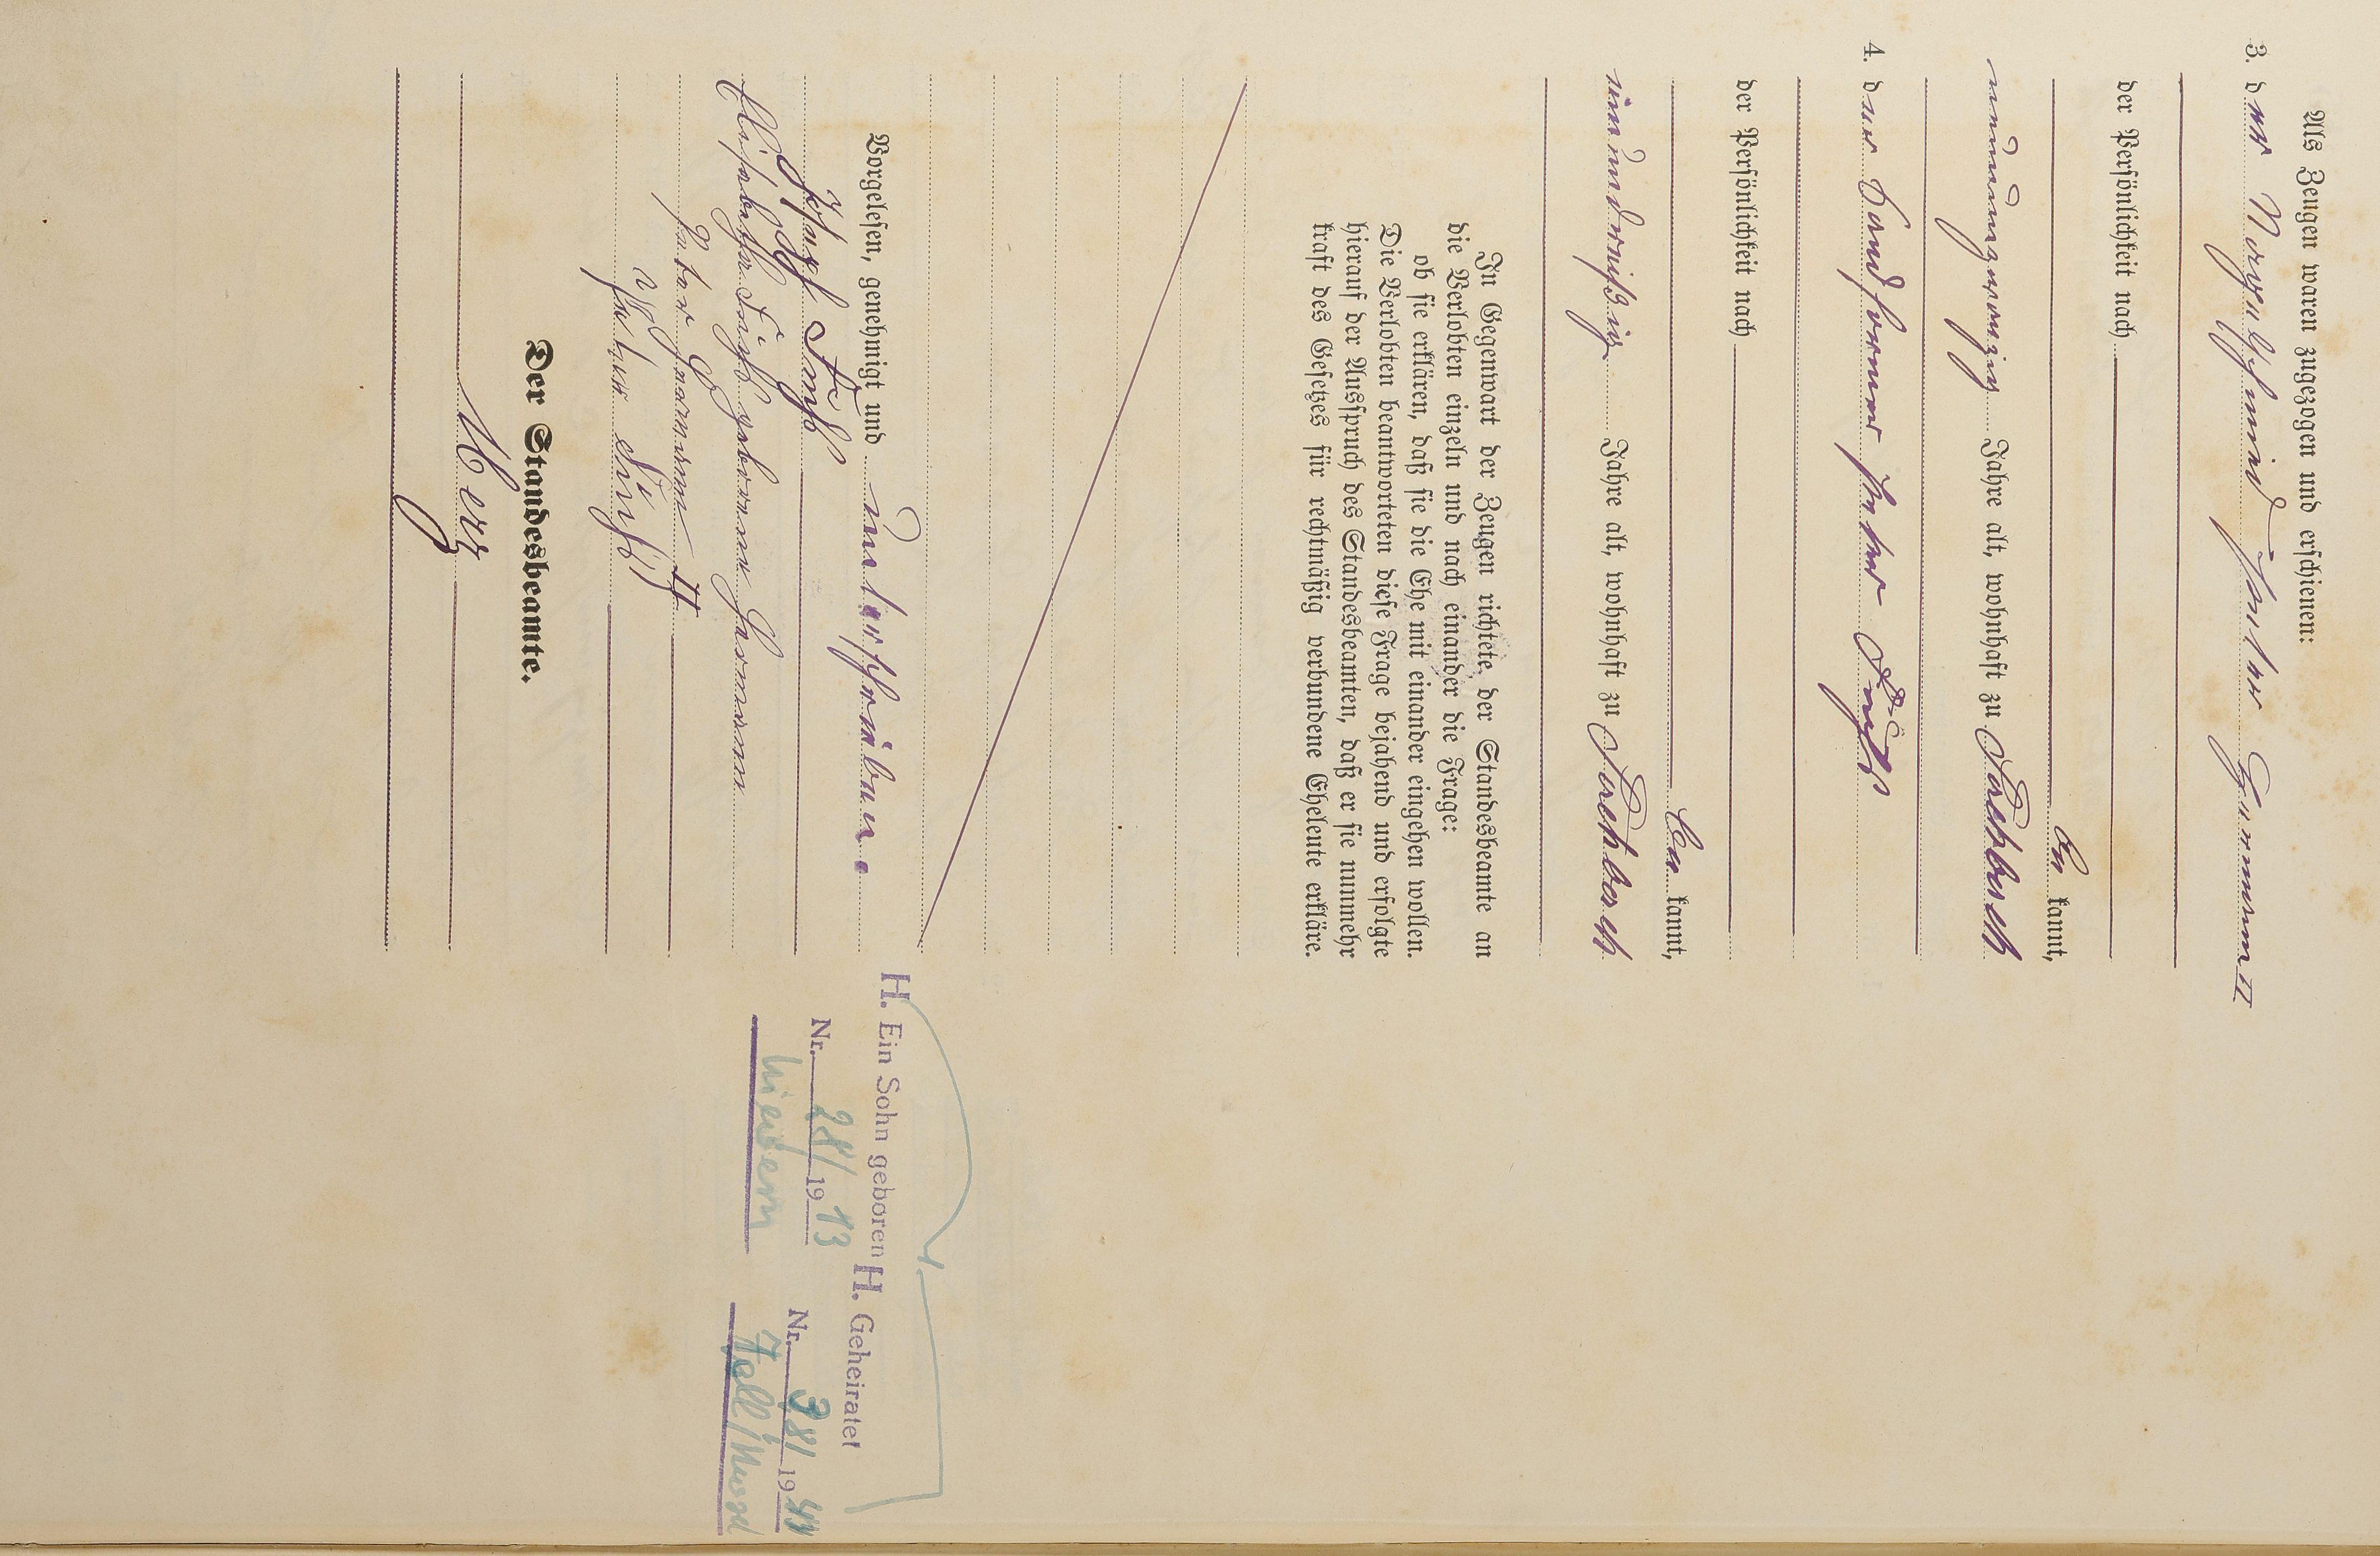 Als Zeugen waren zugezogen und erschienen:
3. der Nagelschmied Peter Hermann II
der Persönlichkeit nach
be kannt,
neunundzwanzig Jahre alt, wohnhaft zu
4. der Peter Süß
der Persönlichkeit nach
be kannt,
einunddreißig Jahre alt, wohnhaft zu
In Gegenwart der Zeugen richtete der Standesbeamte an
die Verlobten einzeln und nach einander die Frage:
ob sie erklären, daß sie die Ehe mit einander eingehen wollen.
Die Verlobten beantworteten diese Frage bejahend und erfolgte
hierauf der Ausspruch des Standesbeamten, daß er sie nunmehr
kraft des Gesetzes für rechtmäßig verbundene Eheleute erkläre.
Vorgelesen, genehmigt und unterschrieben.
Josef Süß
Elisabetha Süß geborene Hermann
Peter Hermann II
Peter Süß
Der Standesbeamte.
Merz
H. Ein Sohn geboren
Nr. 28/ 19 13
hiedern
H. Geheiratet
Nr. 38/ 19
Zell/Mosel